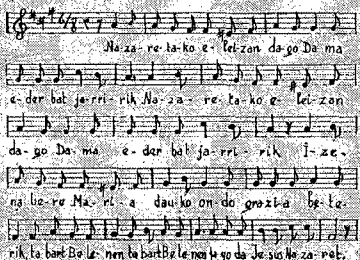 Na-za-re-ta-ko e-lei-zan da-go Da-ma
e-der bat ja-rri-rik Na-za-re-ta-ko e-lei-zan
da-go Da-ma e-der bat ja-rri-rik I-ze-
na be-re Ma-ri-a dau-ko on-do grazi-a be-te-
rik, ta bart Be-le-nen ta bart Be-le-nen ta go da Je-sus Na-za-ret.